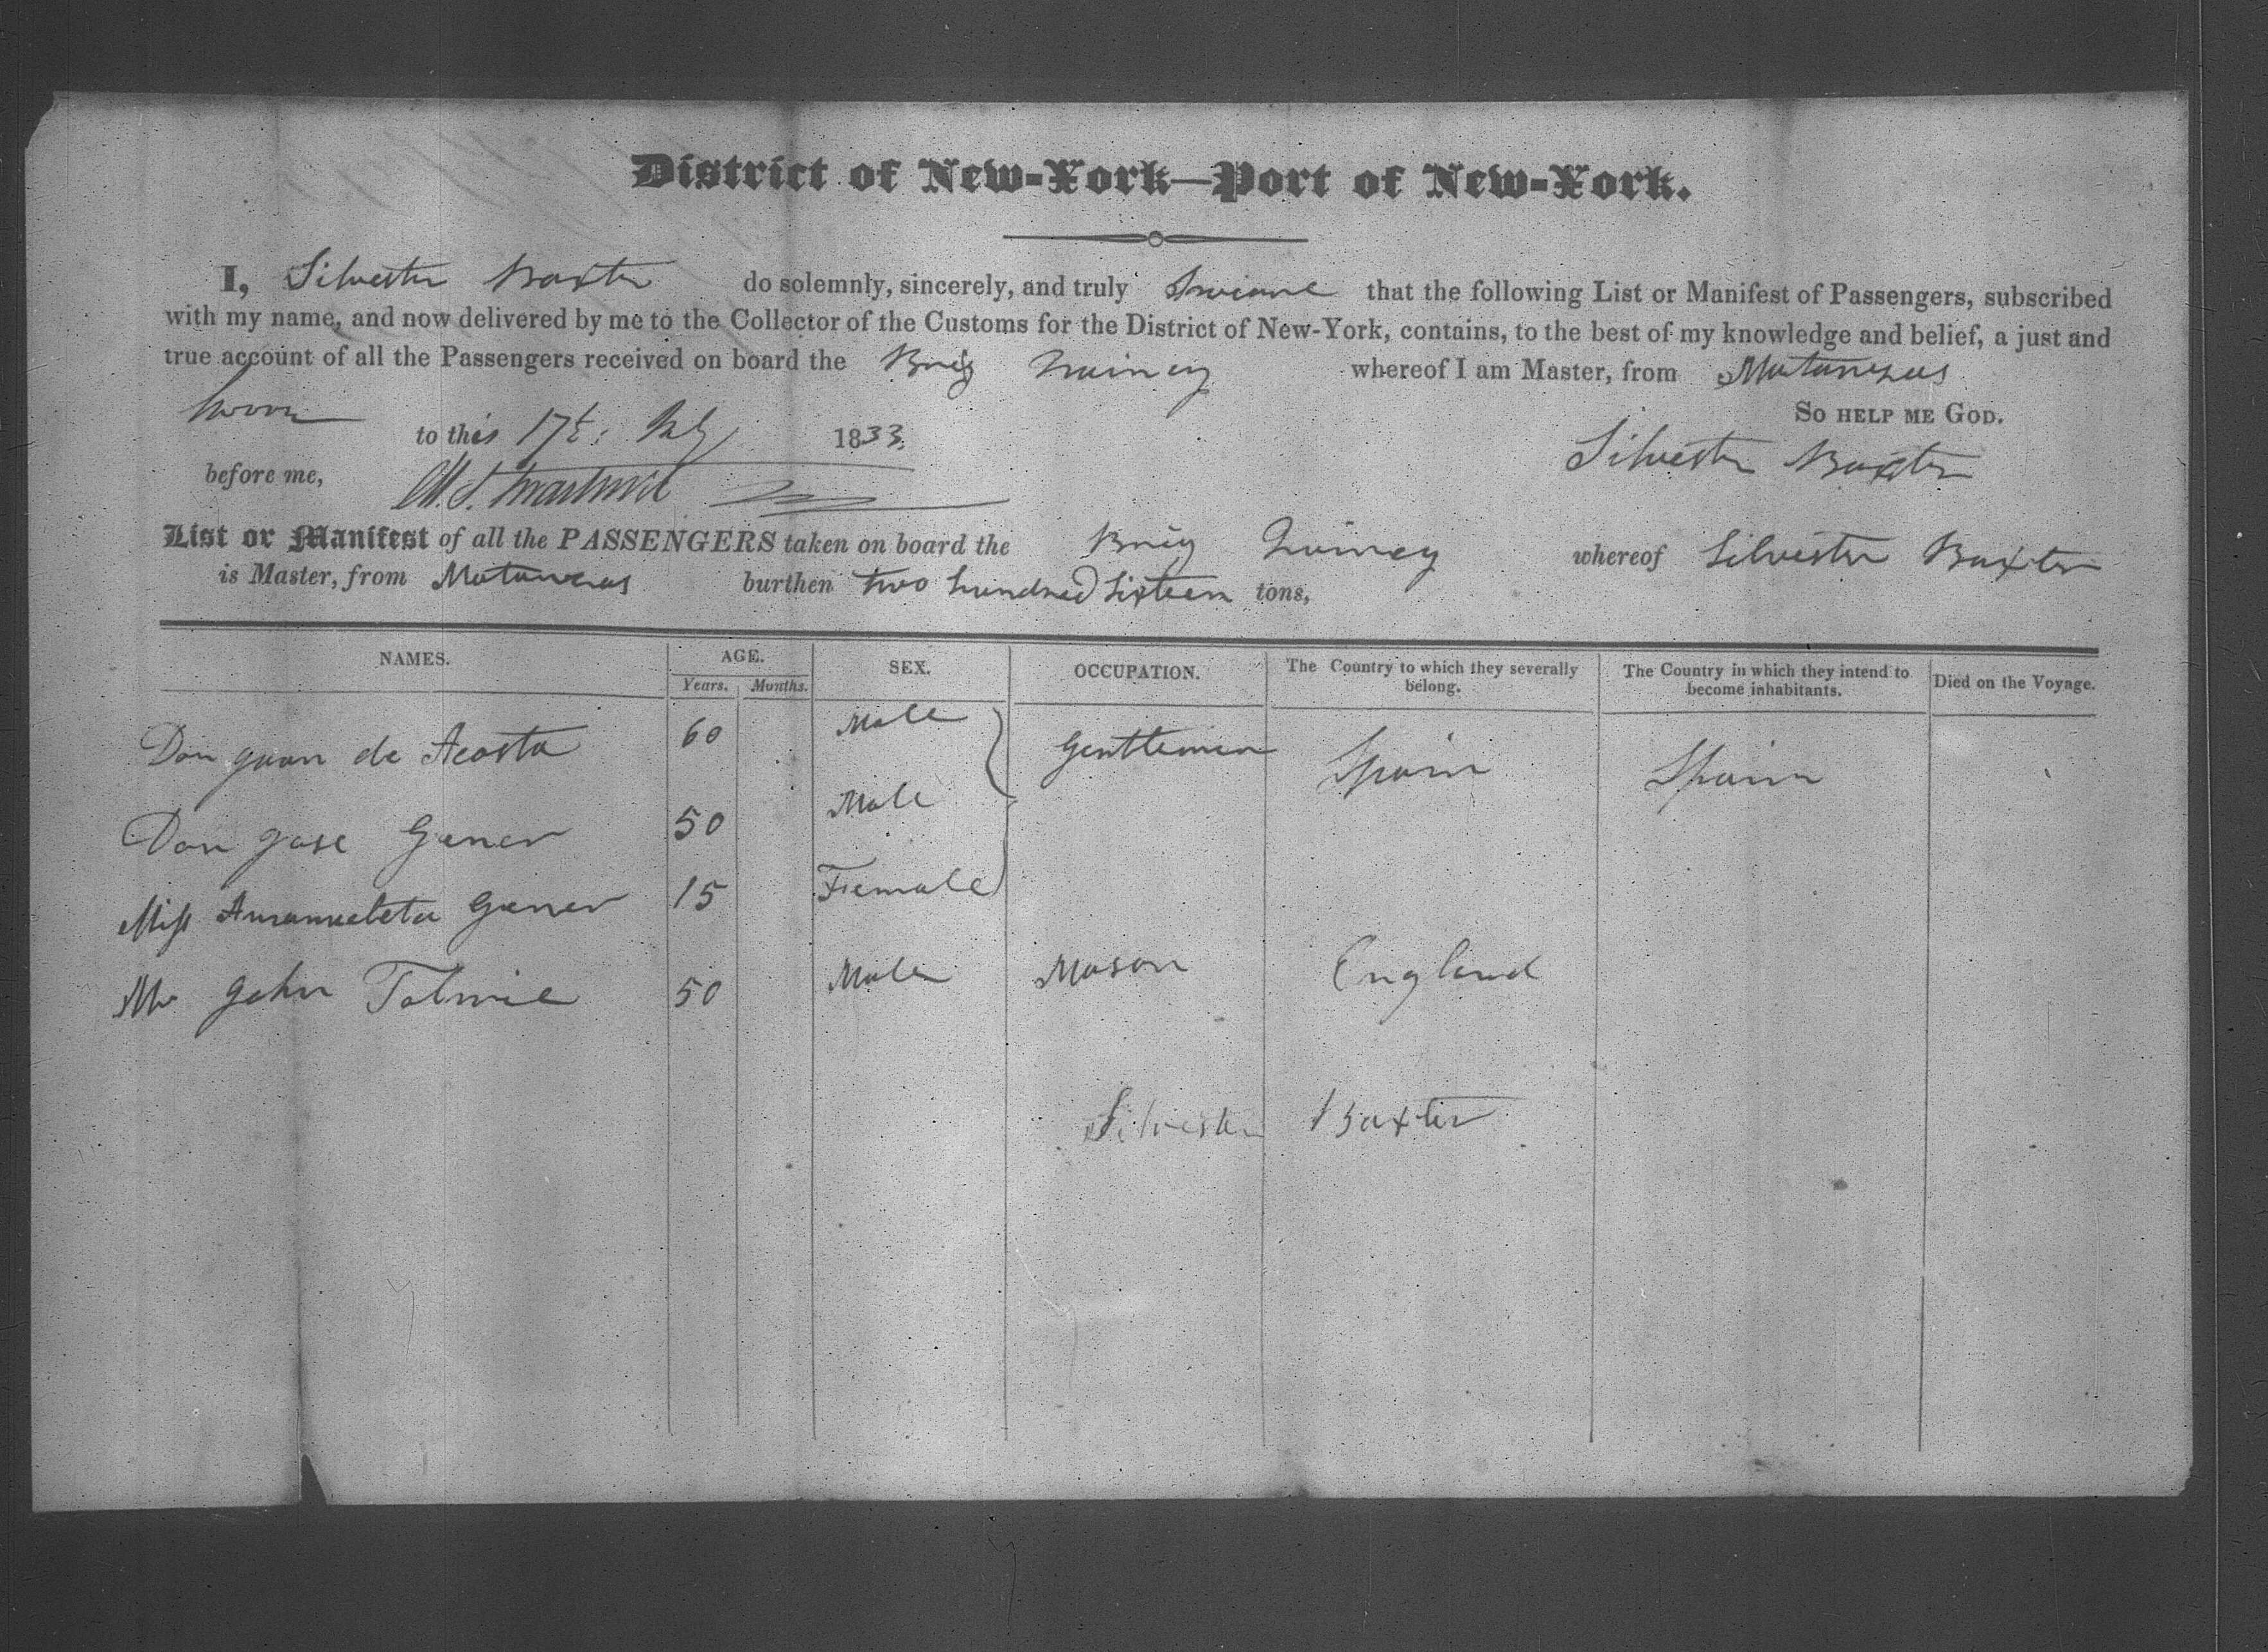 District of New-York—Port of New-York.
I, Silvester Baxter do solemnly, sincerely, and truly that the following List or Manifest of Passengers, subscribed
with my name, and now delivered by me to the Collector of the Customs for the District of New-York, contains, to the best of my knowledge and belief, a just and
true account of all the Passengers received on board the Brig Quincy whereof I am Master, from Matanzas
SO HELP ME GOD.
Sworn to this 17th July 1833
Silvester Baxter
before me,
List or Manifest of all the PASSENGERS taken on board the Brig Quincy whereof Silvester Baxter
is Master, from Matanzas burthen two hundred Sixteen tons,
NAMES. AGE. Years. Months. SEX. OCCUPATION. The Country to which they severally belong. The Country in which they intend to become inhabitants. Died on the Voyage.
Don Juan de Acosta 60 Male Gentlemen Spain Spain
Don Jose Gener 50 Male
Miss Gener 15 Female
Mr John Tolmie 50 Male Mason England
Silvester Baxter